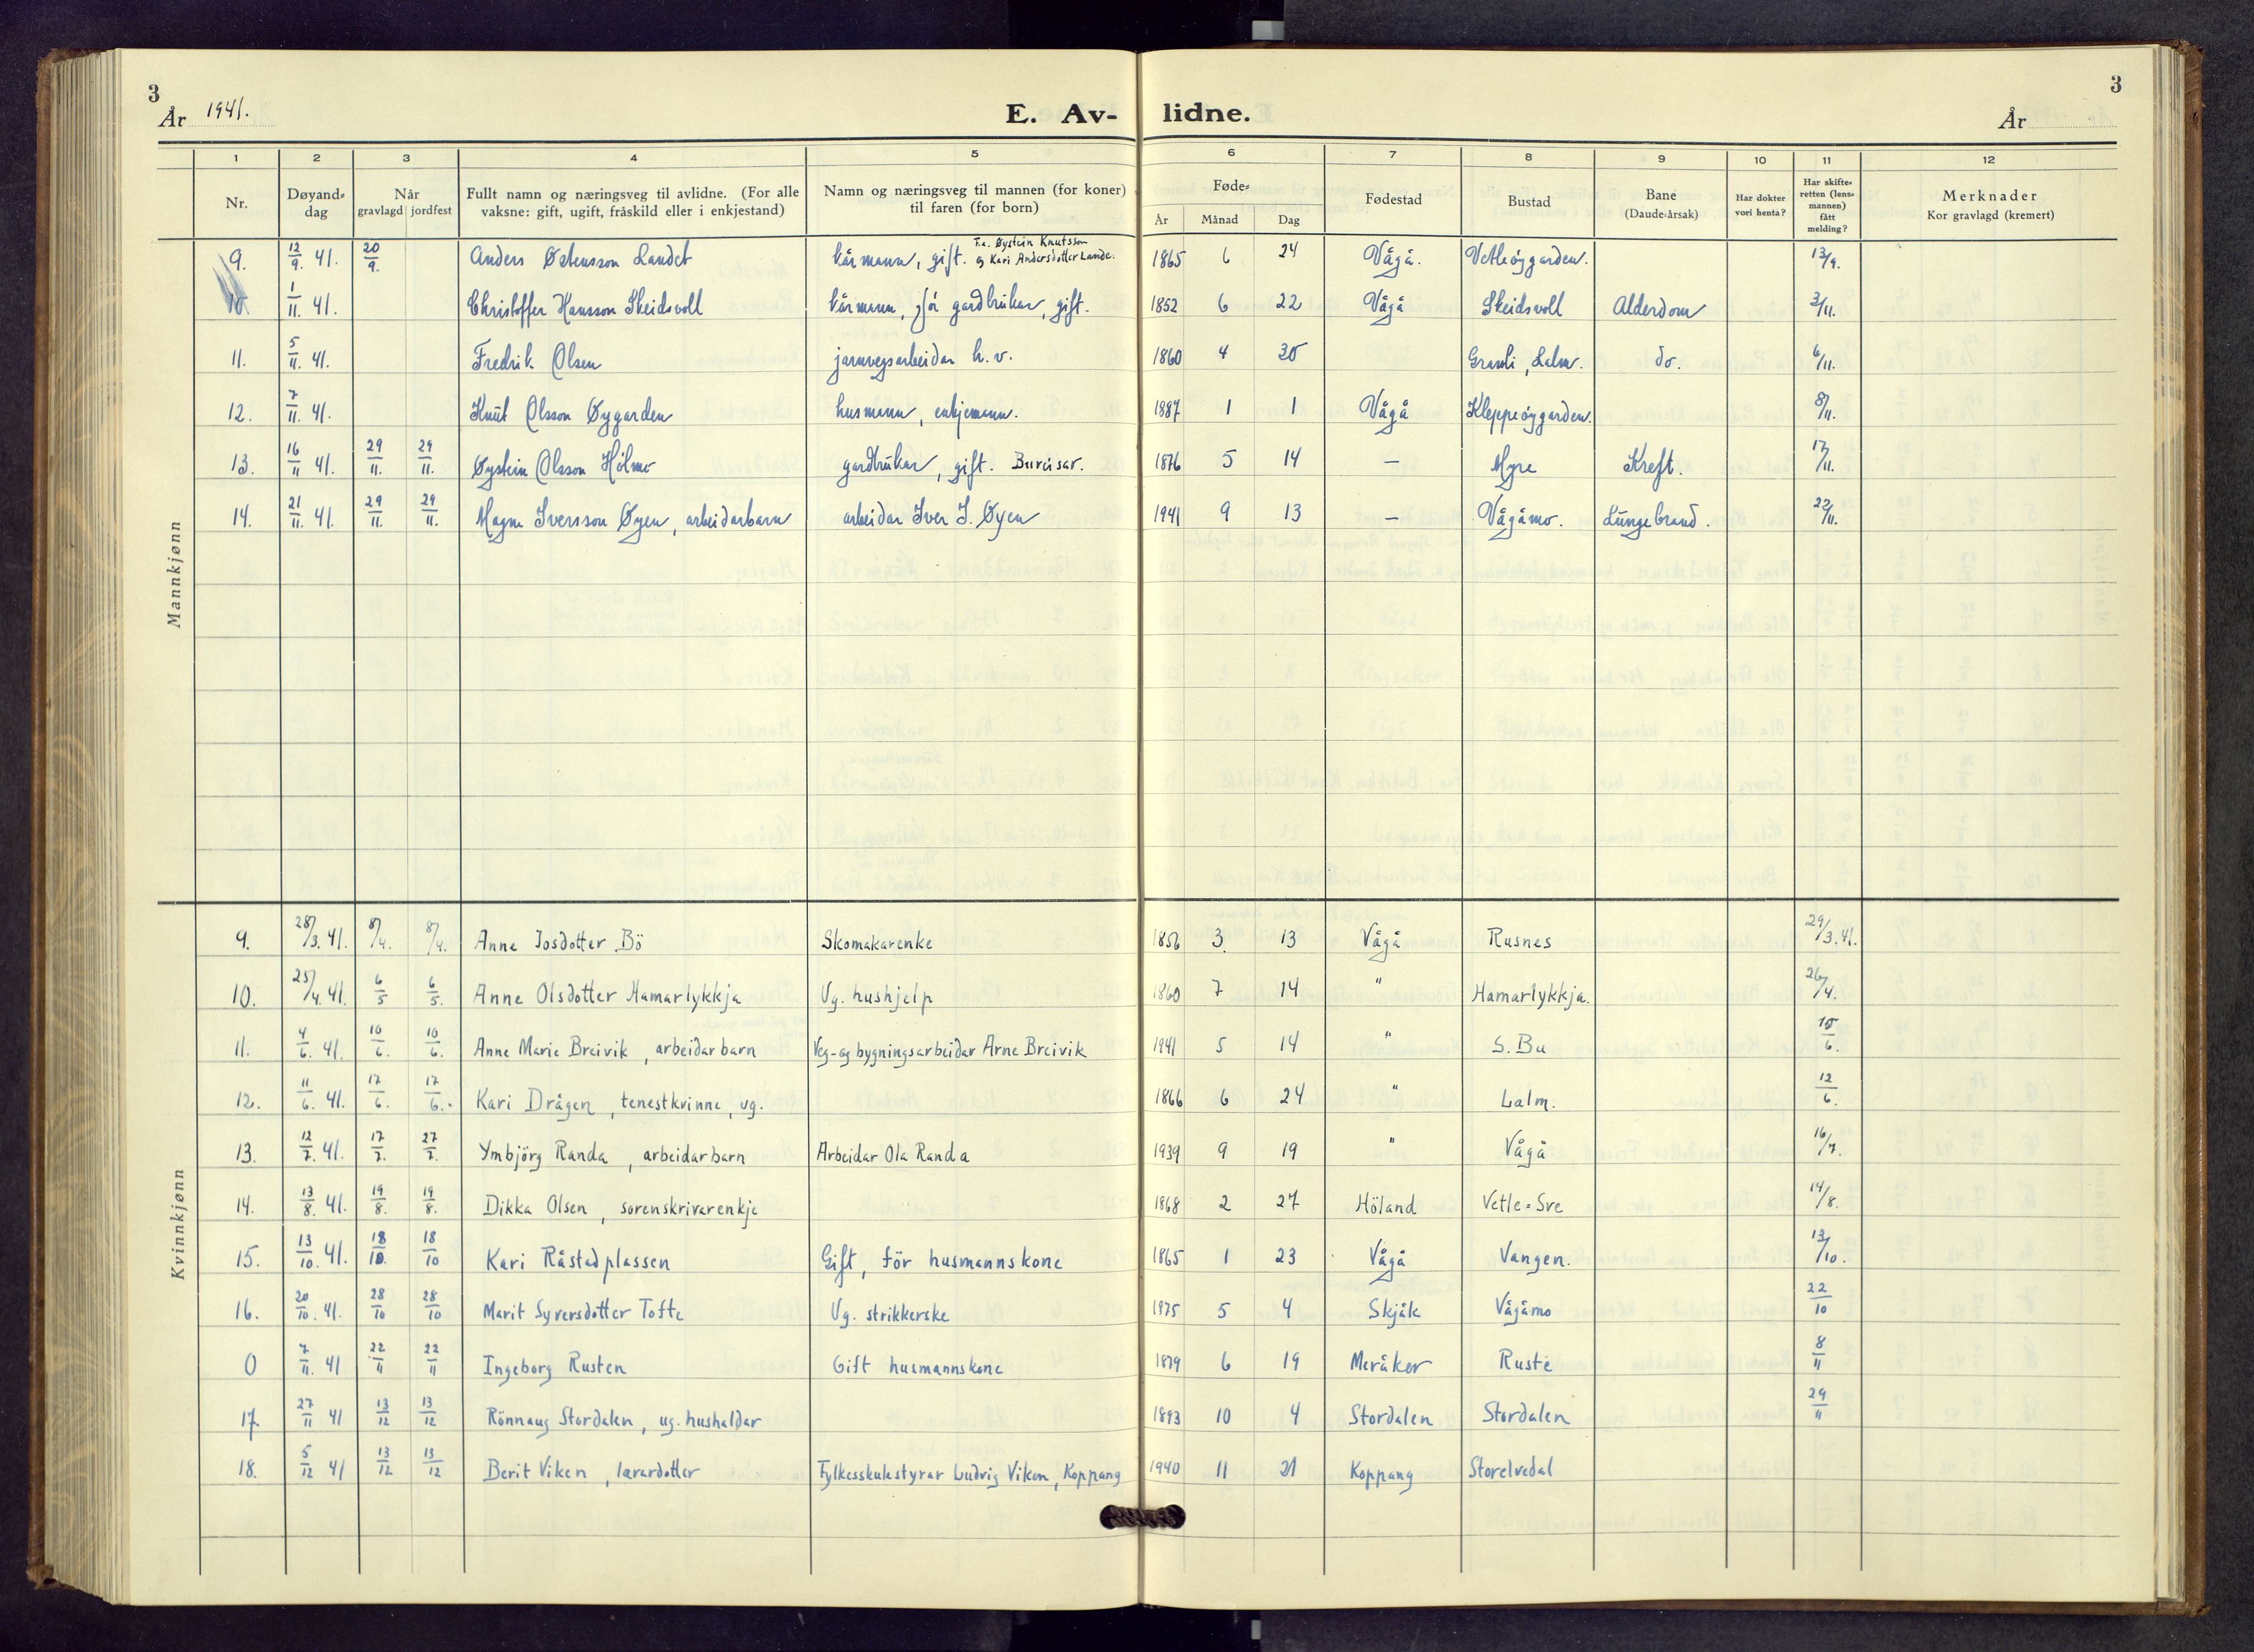 3
År 1941.
E. Av-
lidne.
År
3
1 2 3 4 5 6 7 8 9 10 11 12
Nr.
Døyand-
dag
Når
gravlagd jordfest
Fullt namn og næringsveg til avlidne. (For alle
vaksne: gift, ugift, fråskild eller i enkjestand)
Namn og næringsveg til mannen (for koner)
til faren (for born)
Føde-
År Månad Dag
Fødestad
Bustad
Bane
(Daude-årsak)
Har dokter
vori henta?
Har skifte-
retten (lens-
mannen)
fått
melding?
Merknader
Kor gravlagd (kremert)
Mannkjønn
F.a. Øystein Knutsson
9. 12/9. 41. 20/9. Anders Østensson Landet kårmann, gift. og Kari Andersdotter Lande. 1865 6 24 Vågå. Vetleøygarden. 13/9.
10. 1/11. 41. Christoffer Hansson Skeidsvoll kårmann, før gardbrukar, gift. 1852 6 22 Vågå Skeidsvoll Alderdom 3/11.
11. 5/11. 41. Fredrik Olsen jarnvegsarbeidar h.v. 1860 4 30 Gramli, Lalm. do. 6/11.
12. 7/11. 41. Knut Olsson Øygarden husmann, enkjemann. 1887 1 1 Vågå Kleppeøygarden. 8/11.
13. 16/11 41. 29/11. 29/11. Øystein Olsson Holmo gardbrukar, gift. Bureisar. 1876 5 14 — Myre Kreft. 17/11.
14. 21/11. 41. 29/11. 29/11. Magne Iversson Øyen, arbeidarbarn arbeidar Iver I. Øyen 1941 9 13 — Vågåmo. Lungebrand. 22/11.
Kvinnkjønn
9. 28/3. 41. 8/4. 8/4. Anne Josdotter Bö Skomakarenke 1856 3. 13 Vågå Rusnes 29/3. 41.
10. 25/4. 41. 6/5 6/5. Anne Olsdotter Hamarlykkja Ug. hushjelp 1860 7 14 " Hamarlykkja. 26/4.
11. 4/6. 41. 10/6. 10/6. Anne Marie Breivik, arbeidarbarn Veg- og bygningsarbeidar Arne Breivik 1941 5 14 " S. Bu 10/6.
12. 11/6. 41. 17/6. 17/6. Kari Drågen, tenestkvinne, ug. 1866 6 24 " Lalm. 12/6.
13. 12/7. 41. 17/7. 27/7. Ymbjörg Randa, arbeidarbarn Arbeidar Ola Randa 1939 9 19 " Vågå 16/7.
14. 13/8. 41. 19/8. 19/8. Dikka Olsen, sorenskrivarenkje 1868 2 27 Höland Vetle-Sve 14/8.
15. 13/10. 41. 18/10. 18/10 Kari Råstadplassen Gift, för husmannskone 1865 1 23 Vågå Vangen. 13/10.
16. 20/10. 41. 28/10 28/10 Marit Syversdotter Tofte Ug. strikkerske 1875 5 4 Skjåk Vågåmo 22/10
0 7/11. 41 22/11 22/11 Ingeborg Rusten Gift husmannskone 1879 6 19 Meråker Ruste 8/11
17. 27/11 41 13/12 13/12 Rönnaug Stordalen, ug. hushaldar 1893 10 4 Stordalen Stordalen 29/11
18. 5/12 41 13/12 13/12 Berit Viken, lærardotter Fylkesskulestyrar Ludvig Viken, Koppang 1940 11 21 Koppang Storelvedal